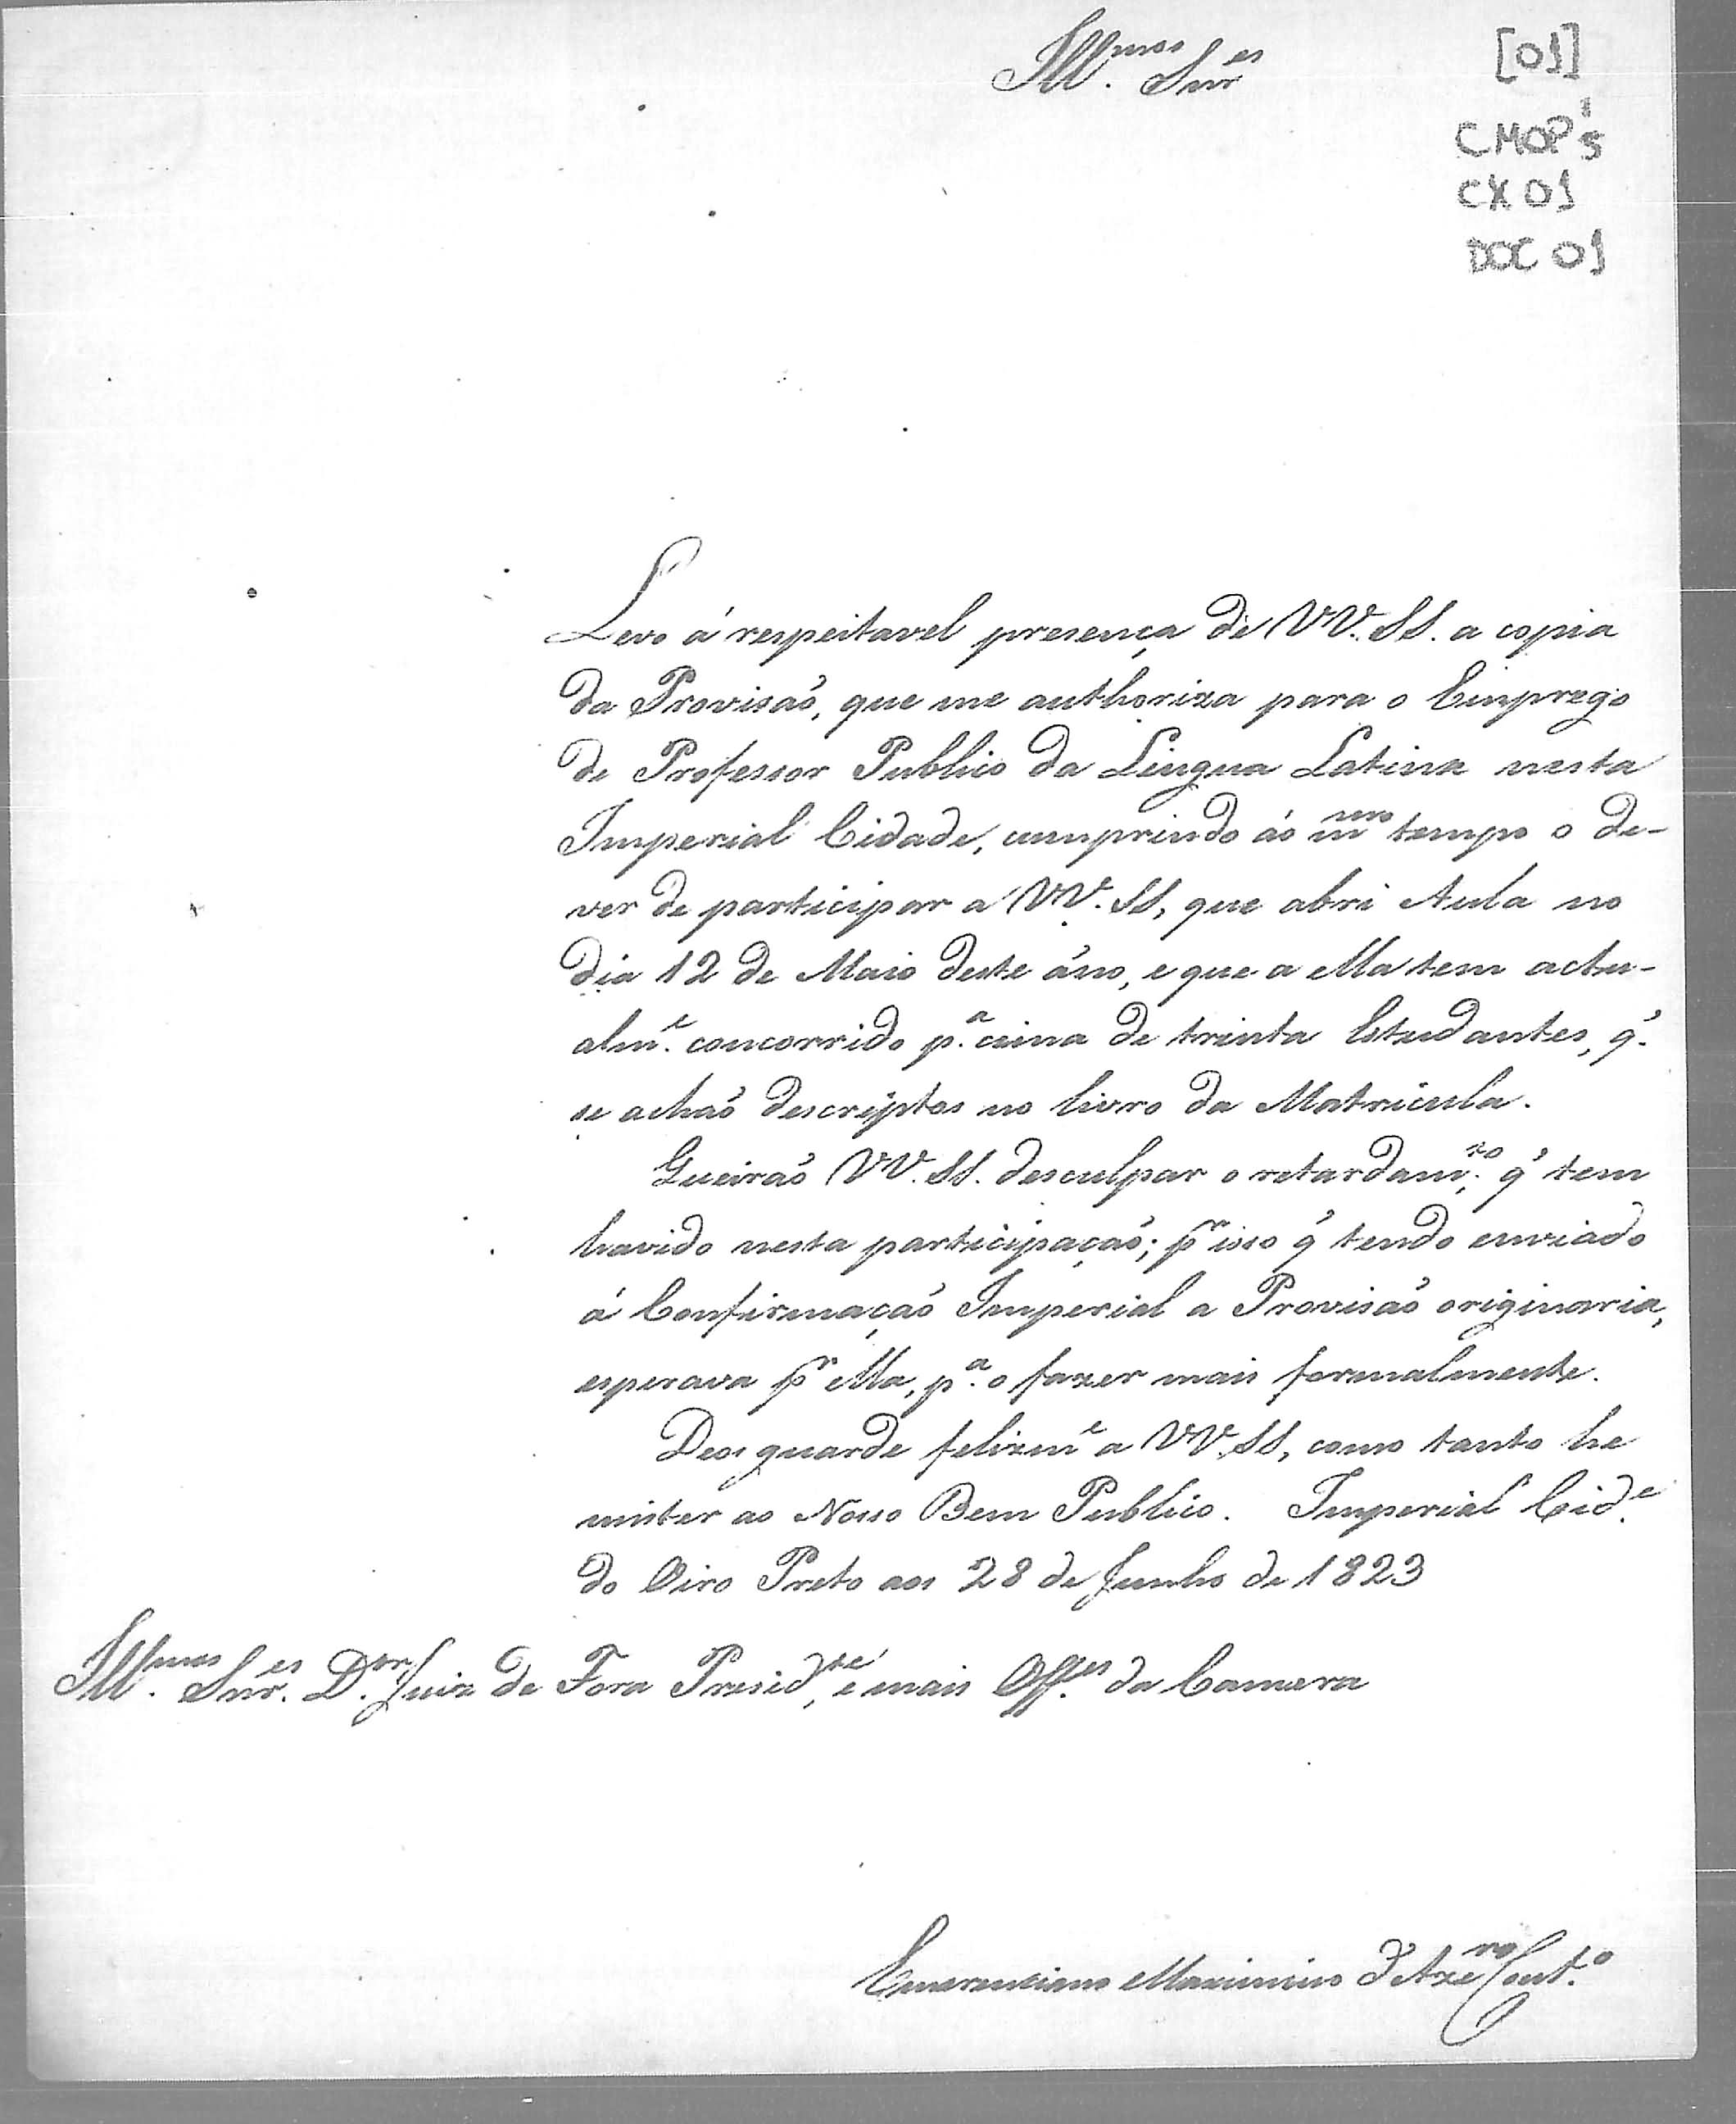 Ill.mos Snr.es
[01]
CMOP's
CX 01
DOC 01
Levo á respeitavel presença de VV. SS. a copia
da Provisaõ, que me authoriza para o Emprego
de Professor Publico da Lingua Latina nesta
Imperial Cidade, cumprindo áo mmo tempo o de-
ver de participar a VV. SS, que abri Aula no
dia 12 de Maio deste áno, e que a ella tem actu-
alm.e concorrido p.a cima de trinta Estudantes, q.
se achaõ descriptos no livro da Matricula.
Queiraõ VV. SS. desculpar o retardam.to, q' tem
havido nesta participaçaõ; pr isso q' tendo enviado
á Confirmaçaõ Imperial a Provisaõ originaria,
esperava pr ella, p.a o fazer mais formalmente.
Deos guarde felizme a VV. SS, como tanto he
mister ao Nosso Bem Publico. Imperial Cid.e
do Oiro Preto aos 28 de Junho de 1823
Ill.mos Snr.es D.or Juiz de Fora Presid.te, e mais Off.es da Camera
Emerenciano Maximino d'Azero Cout.o